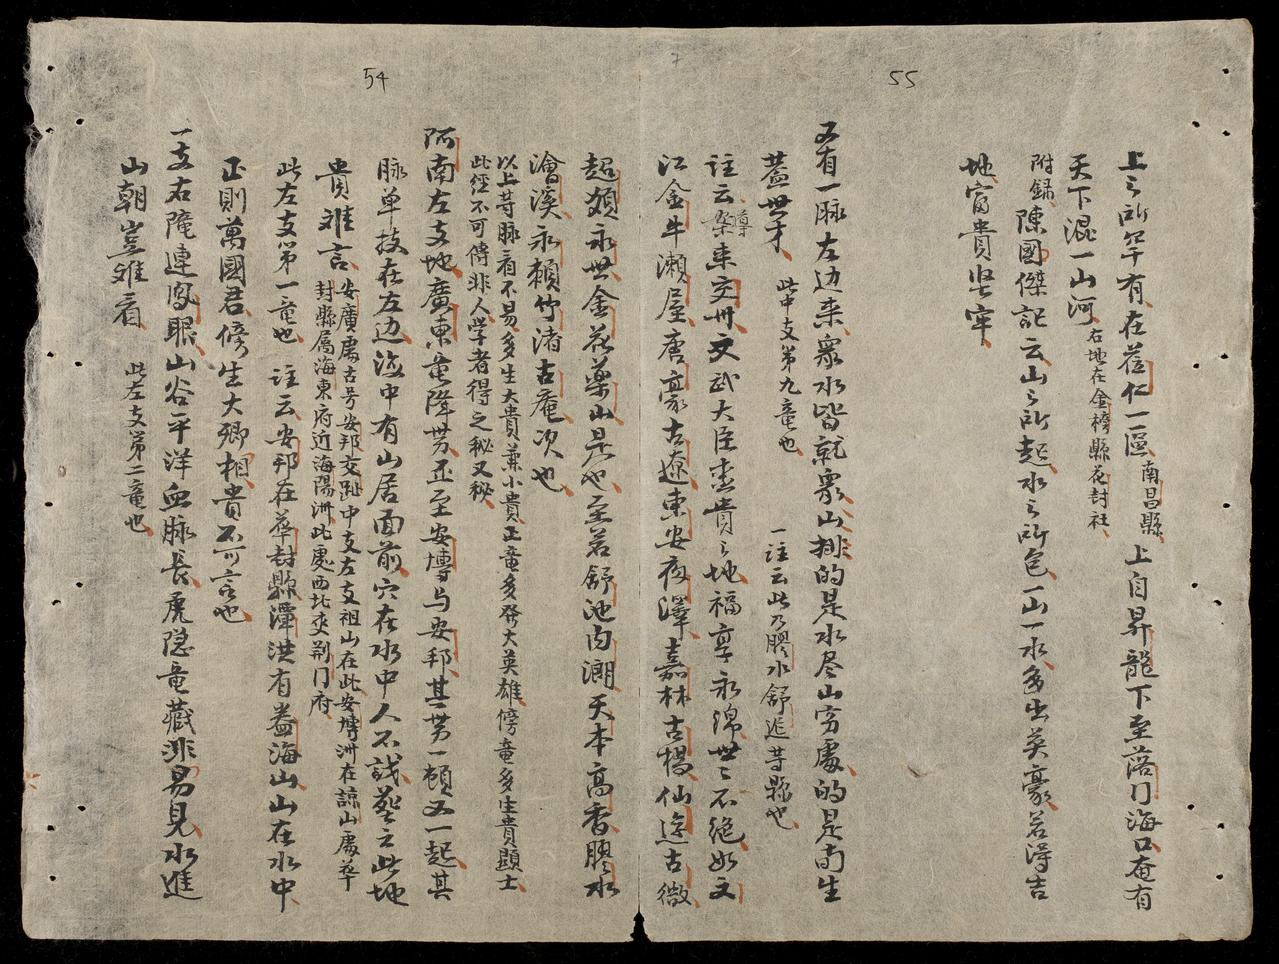 55
上之所罕有在㨿仁一區南昌縣上自昇龍下至落门海口奄有
天下混一山河右地在金榜縣花封社
附録陳國傑記云山之所起水之所包一山一水多出英豪若得吉
地富貴坚牢
又有一脉左边来衆水皆就衆山排的是水尽山窮處的是南生
蓋世才此中支第九竜也一註云此乃膠水舒進䓁縣也
註云來交州文武大臣壹貴之地福享永綿世之不絶如文
江金牛瀬屋唐豪古遼東安夜澤嘉林古楊仙遊古微
54
超頞永世金花藥山是也至若舒池内溯天本高香膠水
澮溪永頼竹渚古庵次也
以上䓁脉看不易多生大貴兼小貴正竜多發大英雄傍竜多生貴顯士
此經不可傳非人学者得之秘又秘
阿南左支地廣東竜降势丕至安博与安邦其势一頓又一起其
脉单技在左边海中有山居面前穴在水中人不識塟之此地
貴难言安廣處古号安邦交趾中支左支祖山在此安博洲在諒山處華
封縣属海東府近海陽洲此處西北夾荆门府
此左支第一竜也註云安邦在華封縣潭洪有益海山山在水中
正則萬國君傍生大卿相貴不可言也
一支右陇連鳳眼山谷平洋血脉長虎隐竜藏非易見水進
山朝豈难看此左支第二竜也